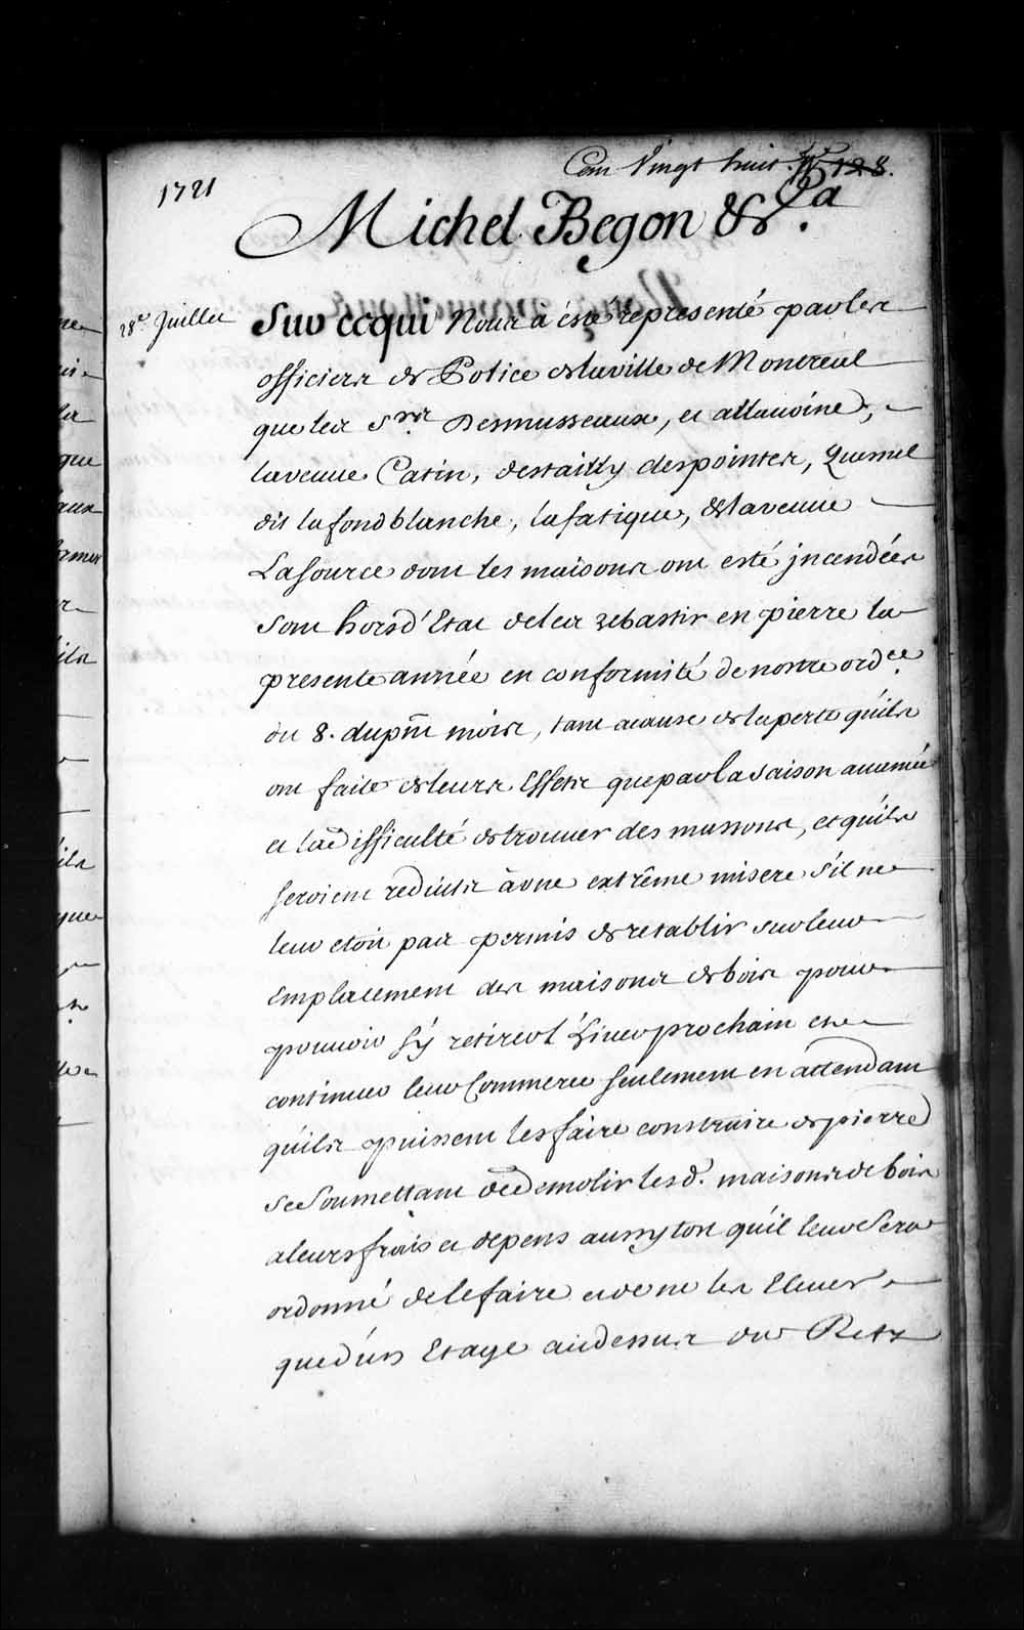 1721
Cent Vingt huit. 128.
Michel Begon &ca.
28e Juillet
Sur ce qui Nous a esté representé par les
officiers de Police de la ville de Montreal
que les Srs Desmusseaux, et attavoine,
la veuve Catin, destailly despointes, Quesnel
dit la fond blanche, la fatigue, & la veuve
La Source dont les maisons ont esté jncendées
sont hors d'Etat de les rebastir en pierre la
presente année en conformité de nostre ordce.
du 8. du pnt mois, tant a cause de la perte qu'ils
ont faite de leurs Effets que par la saison auancée
et la difficulté de trouuer des massons, et qu'ils
seroient reduits à vne extrême misere s'il ne
leur etoit pas permis de retablir sur leur
Emplacement des maisons de bois pour
pouuoir s'y retirer l'hiuer prochain et
continuer leur Commerce seulement en attendant
qu'ils puissent les faire construire de pierre
se Soumettant de demolir les d. maisons de bois
a leurs frais et depens aussy tost qu'il leur Sera
ordonné de le faire et de ne les Eleuer
que d'un Etage audessus du Retz